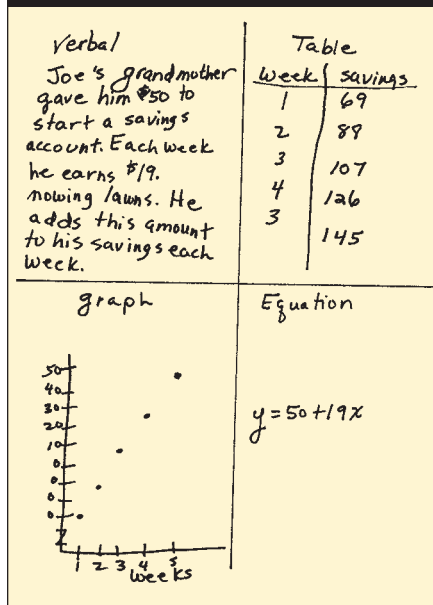 Verbal
Joe's grandmother
gave him $50 to
start a savings
account. Each week
he earns $19.
nowing lawns. He
adds this amount
to his savings each
week.
Table
week savings
1 69
2 88
3 107
4 126
3 145
graph
50
40
30
20
10
0
0
0
0
1 2 3 4 5
weeks
Equation
y = 50 + 19x